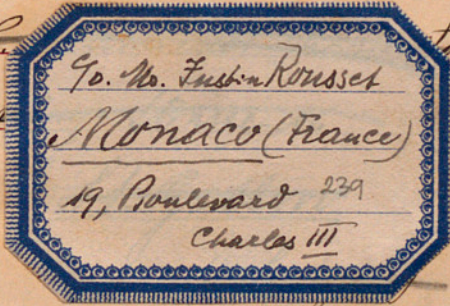 c/o. Mr. Justin Rousset
Monaco (France)
19, Boulevard 239
Charles III